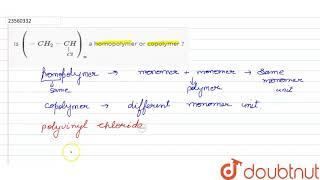 23560332
Is (- CH2 - CH )n a homopolymer or copolymer ?
Cl
homopolymer → monomer + monomer → same
same polymer monomer unit
copolymer → different monomer unit
polyvinyl chloride
doubtnut